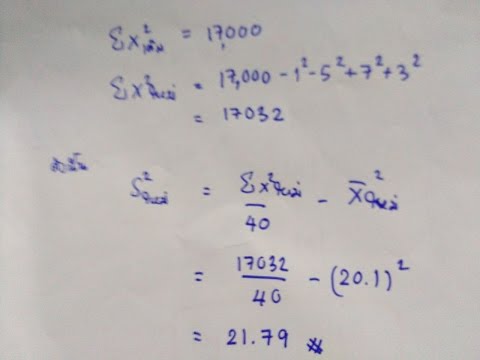 Σx²เดิม = 17,000
Σx²ใหม่ = 17,000 - 1² - 5² + 7² + 3²
= 17032
ดังนั้น S²ใหม่ = Σx²ใหม่/40 - x̄²ใหม่
= 17032/40 - (20.1)²
= 21.79 ※